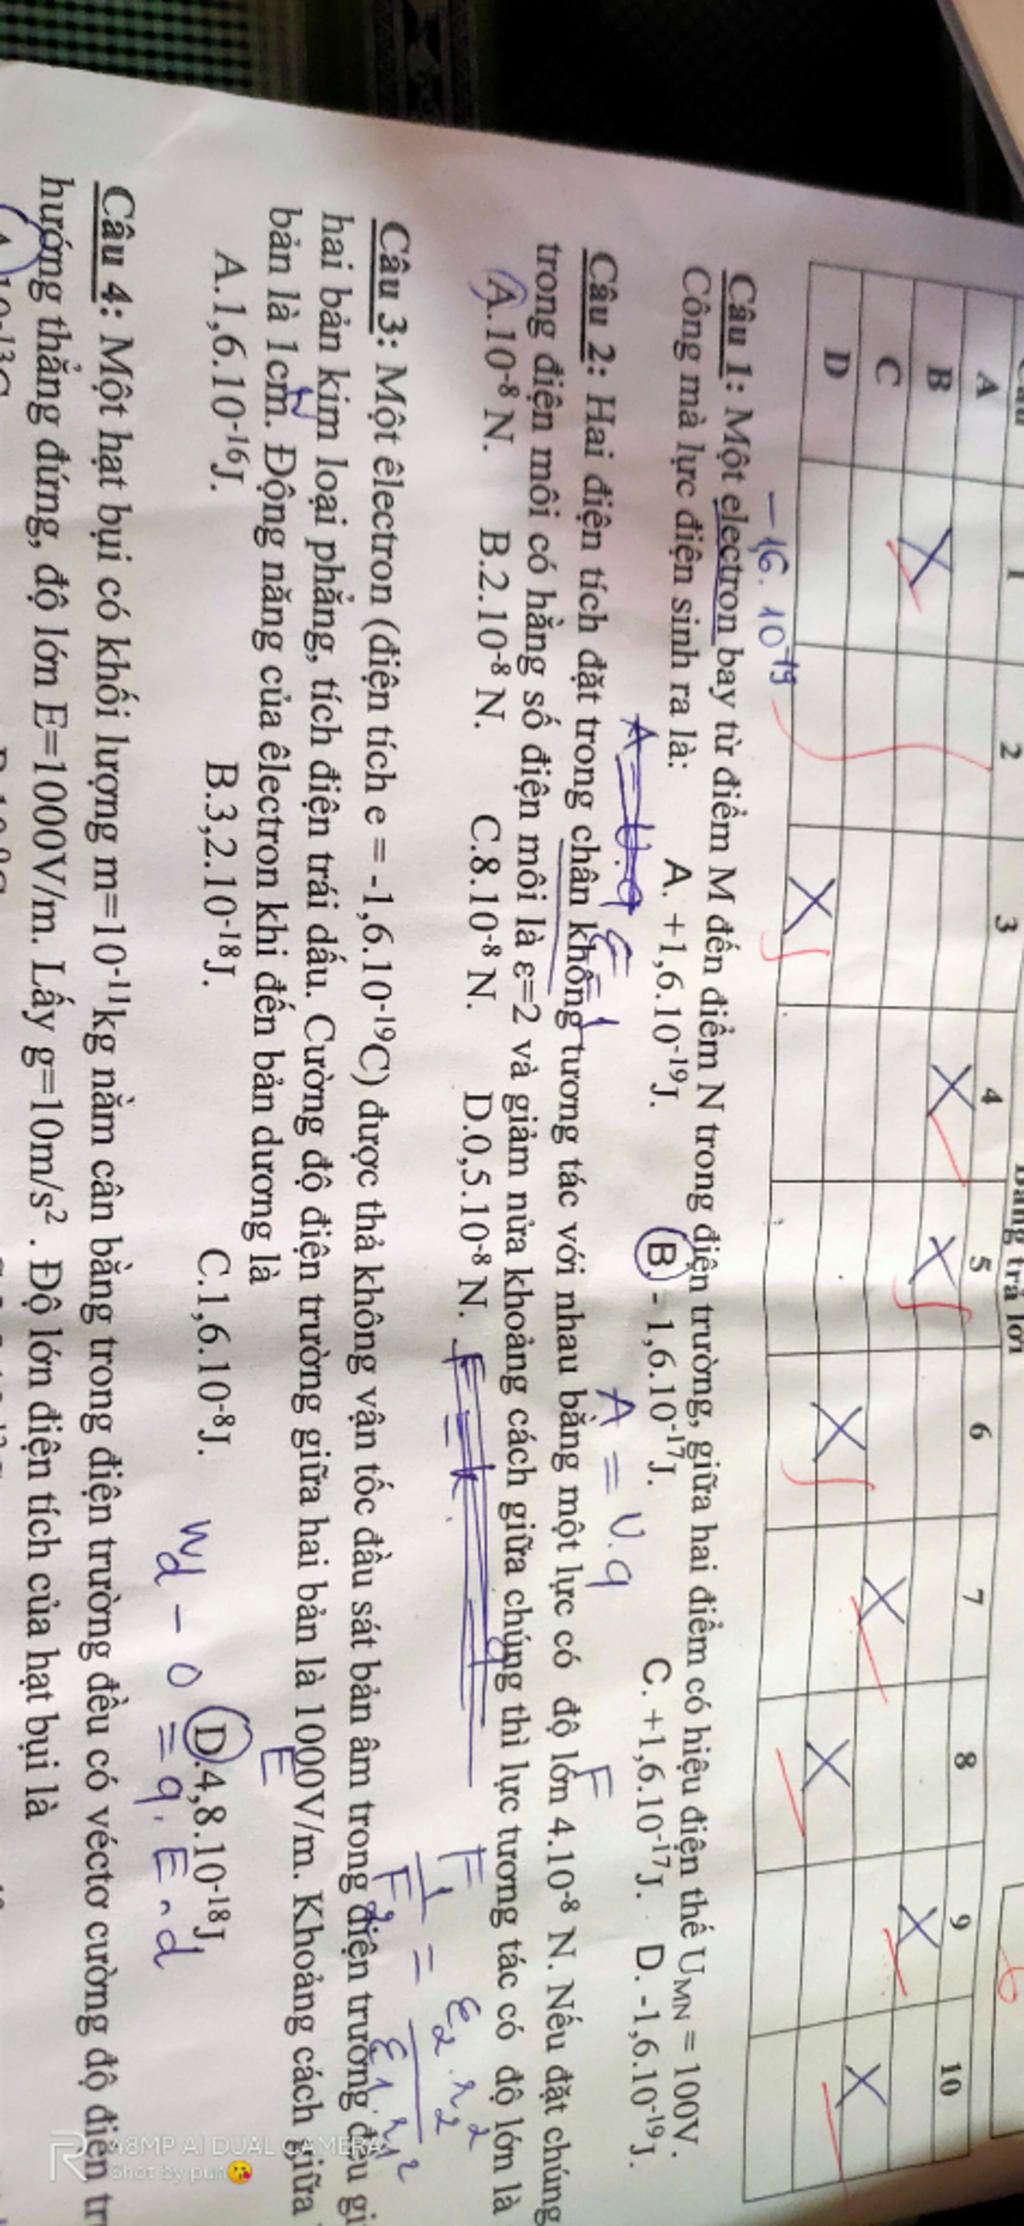 Bảng trả lời
1 2 3 4 5 6 7 8 9 10
A
B X X X X
C X X
D X X X
-1,6.10-19
Câu 1: Một electron bay từ điểm M đến điểm N trong điện trường, giữa hai điểm có hiệu điện thế UMN = 100V.
Công mà lực điện sinh ra là: A. +1,6.10-19J. B. -1,6.10-17J. C. +1,6.10-17J. D. -1,6.10-19J.
A = U.q A = U.q F
Câu 2: Hai điện tích đặt trong chân không tương tác với nhau bằng một lực có độ lớn 4.10-8 N. Nếu đặt chúng
trong điện môi có hằng số điện môi là ε=2 và giảm nửa khoảng cách giữa chúng thì lực tương tác có độ lớn là
A.10-8 N. B.2.10-8 N. C.8.10-8 N. D.0,5.10-8 N.
F1/F2 = ε2.r2²/ε1.r1²
Câu 3: Một êlectron (điện tích e = -1,6.10-19C) được thả không vận tốc đầu sát bản âm trong điện trường đều gi
hai bản kim loại phẳng, tích điện trái dấu. Cường độ điện trường giữa hai bản là 1000V/m. Khoảng cách giữa
E
bản là 1cm. Động năng của êlectron khi đến bản dương là
A.1,6.10-16J. B.3,2.10-18J. C.1,6.10-8J. D.4,8.10-18J.
Wd - 0 = q.E.d
Câu 4: Một hạt bụi có khối lượng m=10-11kg nằm cân bằng trong điện trường đều có véctơ cường độ điện trư
hướng thẳng đứng, độ lớn E=1000V/m. Lấy g=10m/s2 . Độ lớn điện tích của hạt bụi là
48MP AI DUAL CAMERA
Shot by pun